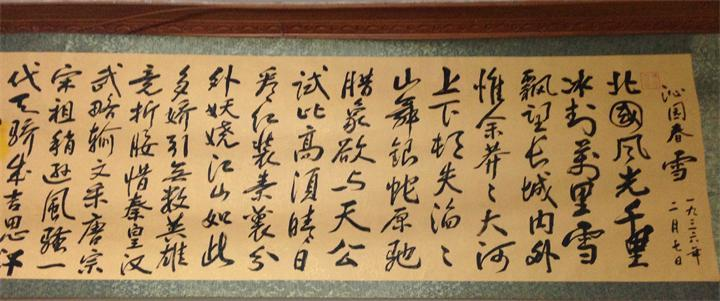 沁园春 雪
一九三六年
二月七日
北國风光千里
冰封萬里雪
飘望长城内外
惟余莽々大河
上下顿失滔々
山舞银蛇原驰
腊象欲与天公
试比高须晴日
看红装素裹分
外妖娆江山如此
多娇引無数英雄
竞折腰惜秦皇汉
武略输文采唐宗
宋祖稍逊风骚一
代天骄成吉思